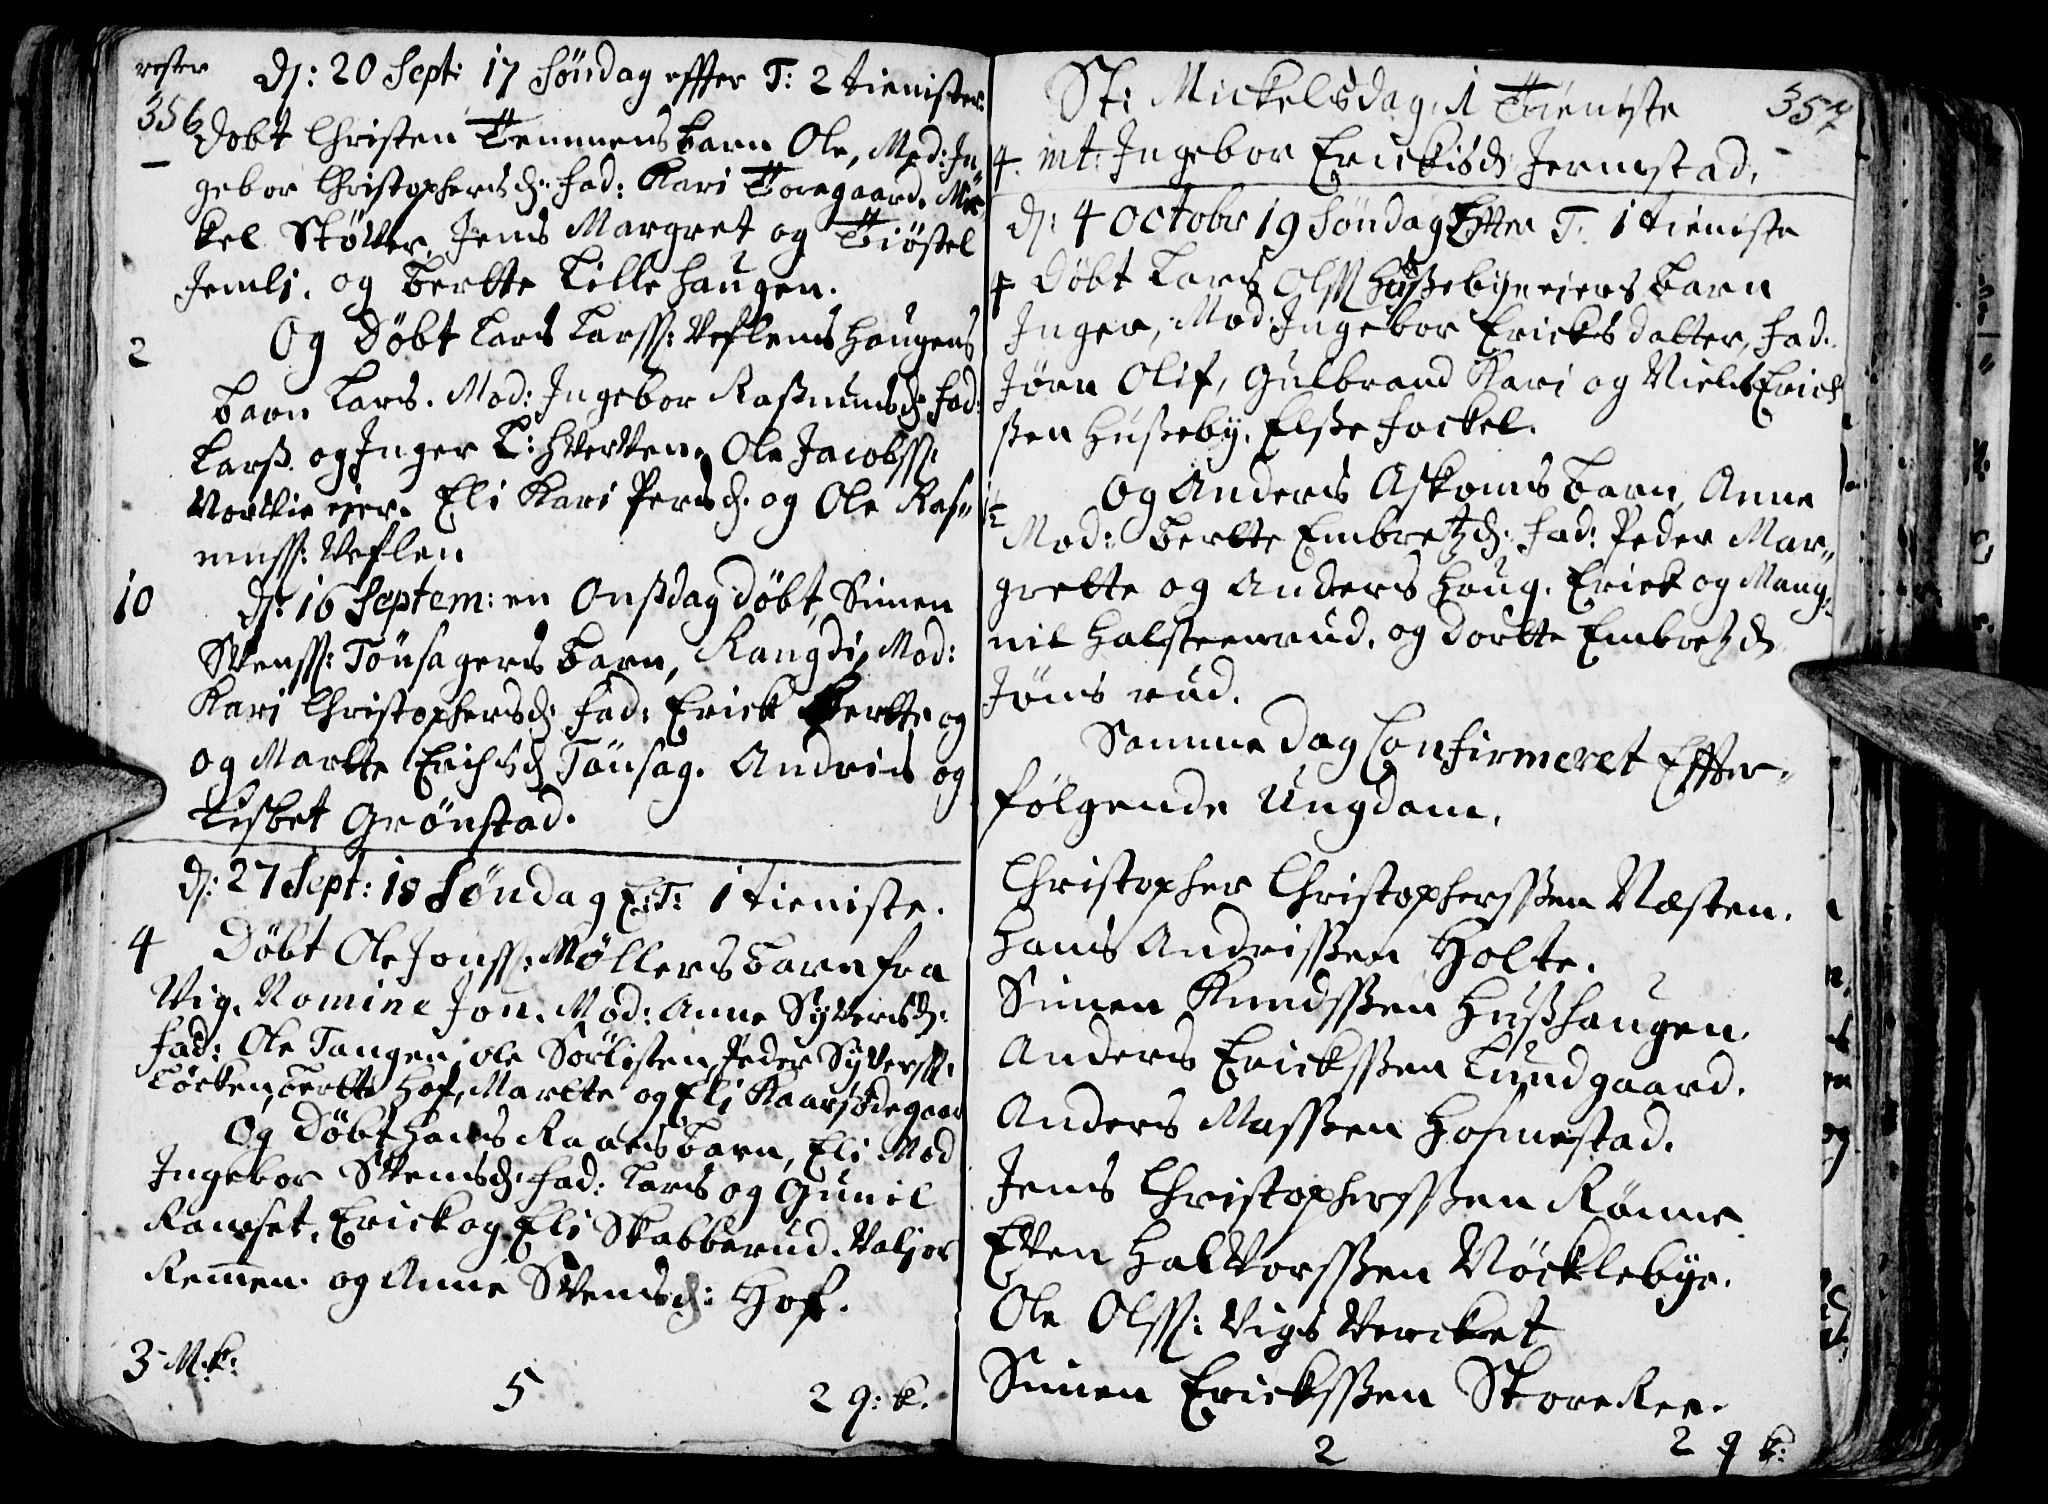 rester
356
dj: 20 Sept: 17 Søndag effter T: 2 tienister
Døbt Christen Temmens barn Ole, Mod: In„
gebor Christophersd. fad: Kari Toregaard. Mic
kel Støver, Jens Margret og Tiøstel
Jemli. og Bertte Lille haugen.
2
Og Døbt Lars Larss: Veflens haugens
barn Lars. Mod: Ingebor Rasmusd. fad:
Larss og Inger L: Hverven, Ole Jacobss:
Norlie eier. Eli Kari Persd. og Ole Ras„
muss: Veflen
10
dj: 16 Septem: en Onssdag døbt, Simen
Svenss: Tønsagers barn, Rangdi, Mod:
Kari Christophersd. fad: Erick Bertte og
og Martte Erichsd Tønsag. Andris og
Lisbet Grønstad.
dj: 27 Sept: 18 Søndag E:T: 1 tieniste.
4
Døbt Ole Jonss: Møllers barn fra
Vig, Nomine Jon. Mod: Anne Syversd:
fad: Ole Tangen, ole Sørlisten, Peder Syverss:
Løcken, Bertte Hof, Martte og Eli Kaarsødegaar
Og Døbt Hans Raaens barn, Eli Mod
Ingebor Svensd: fad: Lars og Gunil
Ramset, Erick og Eli Skabberud. Valjor
Remen. og Anne Svensd: Hof.
3 Mk:
5
2 q: k.
St: Mickelsdag, 1 Tieniste
357
4. int: Ingebor Ericksd Jermstad.
dj: 4 Octobr 19 Søndag Effter T. 1 tieniste
4 Døbt Lars Olss Hussebye eiers barn
Inger, Mod: Ingebor Ericksdatter, fad:
Jørn Olif, Gulbrand Kari og Niels Erich
ssen Husseby, Elsse Fockel.
1½
Og Anders Askoms barn, Anne
Mod: Bertte Embretzd: fad: Peder Mar„
grette og Anders Haug. Erick og Mang„
nil Halsteenrud, og Dortte Embretzd
Jøns rud.
Samme dag Confirmeret Effter„
følgende Ungdom.
Christopher Christopherssen Næsten.
Hans Andrissen Holte.
Simen Knudssen Husshaugen.
Anders Erickssen Lundgaard.
Anders Massen Hofmestad.
Jens Christopherssen Rønne
Even Halvorssen Nøcklebye.
Ole Olss: Vigs Vercket
Simen Erickssen Store Ree.
2
2 q k: